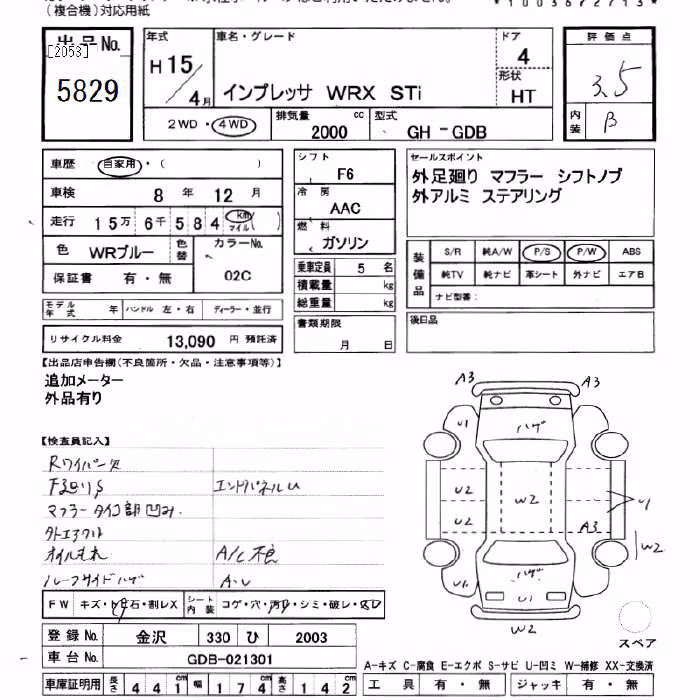 (複合機)対応用紙
*10036727 13*
出品No.
[2053]
5829
年式
H15/4月
車名・グレード
インプレッサ WRX STi
ドア
4
形状
HT
評価点
3.5
内装
B
2WD・4WD
排気量
2000 cc
型式
GH - GDB
車歴 自家用・( )
車検 8年 12月
走行 15万 6千 5 8 4 km マイル( )
色 WRブルー 色替
カラーNo.
02C
保証書 有・無
シフト
F6
冷房
AAC
燃料
ガソリン
乗車定員 5 名
積載量 kg
総重量 kg
書類期限
月 日
セールスポイント
外足廻り マフラー シフトノブ
外アルミ ステアリング
装備品
S/R 純A/W P/S P/W ABS
純TV 純ナビ 革シート 外ナビ エアB
ナビ型番:
後日品
モデル年式 年 ハンドル 左・右 ディーラー・並行
リサイクル料金 13,090 円 預託済
【出品店申告欄(不良箇所・欠品・注意事項等)】
追加メーター
外品有り
【検査員記入】
Rワイパー欠
F廻りS エンドパネルU
マフラータイコ部凹み.
外エアクリ
オイルもれ A/C不良
ルーフサイドハゲ A-U
FW キズ・飛石・割レX シート内装 コゲ・穴・汚レ・シミ・破レ・スレ
登録No. 金沢 330 ひ 2003
車台No. GDB-021301
車庫証明用 長さ 441 幅 174 高さ 142 cm
A3 A3
U1 ハゲ
U2 W2 U1
U2 A3 W2
U1 ハゲ
U1
W2
スペア
A-キズ C-腐食 E-エクボ S-サビ U-凹ミ W-補修 XX-交換済
工具 有・無 ジャッキ 有・無